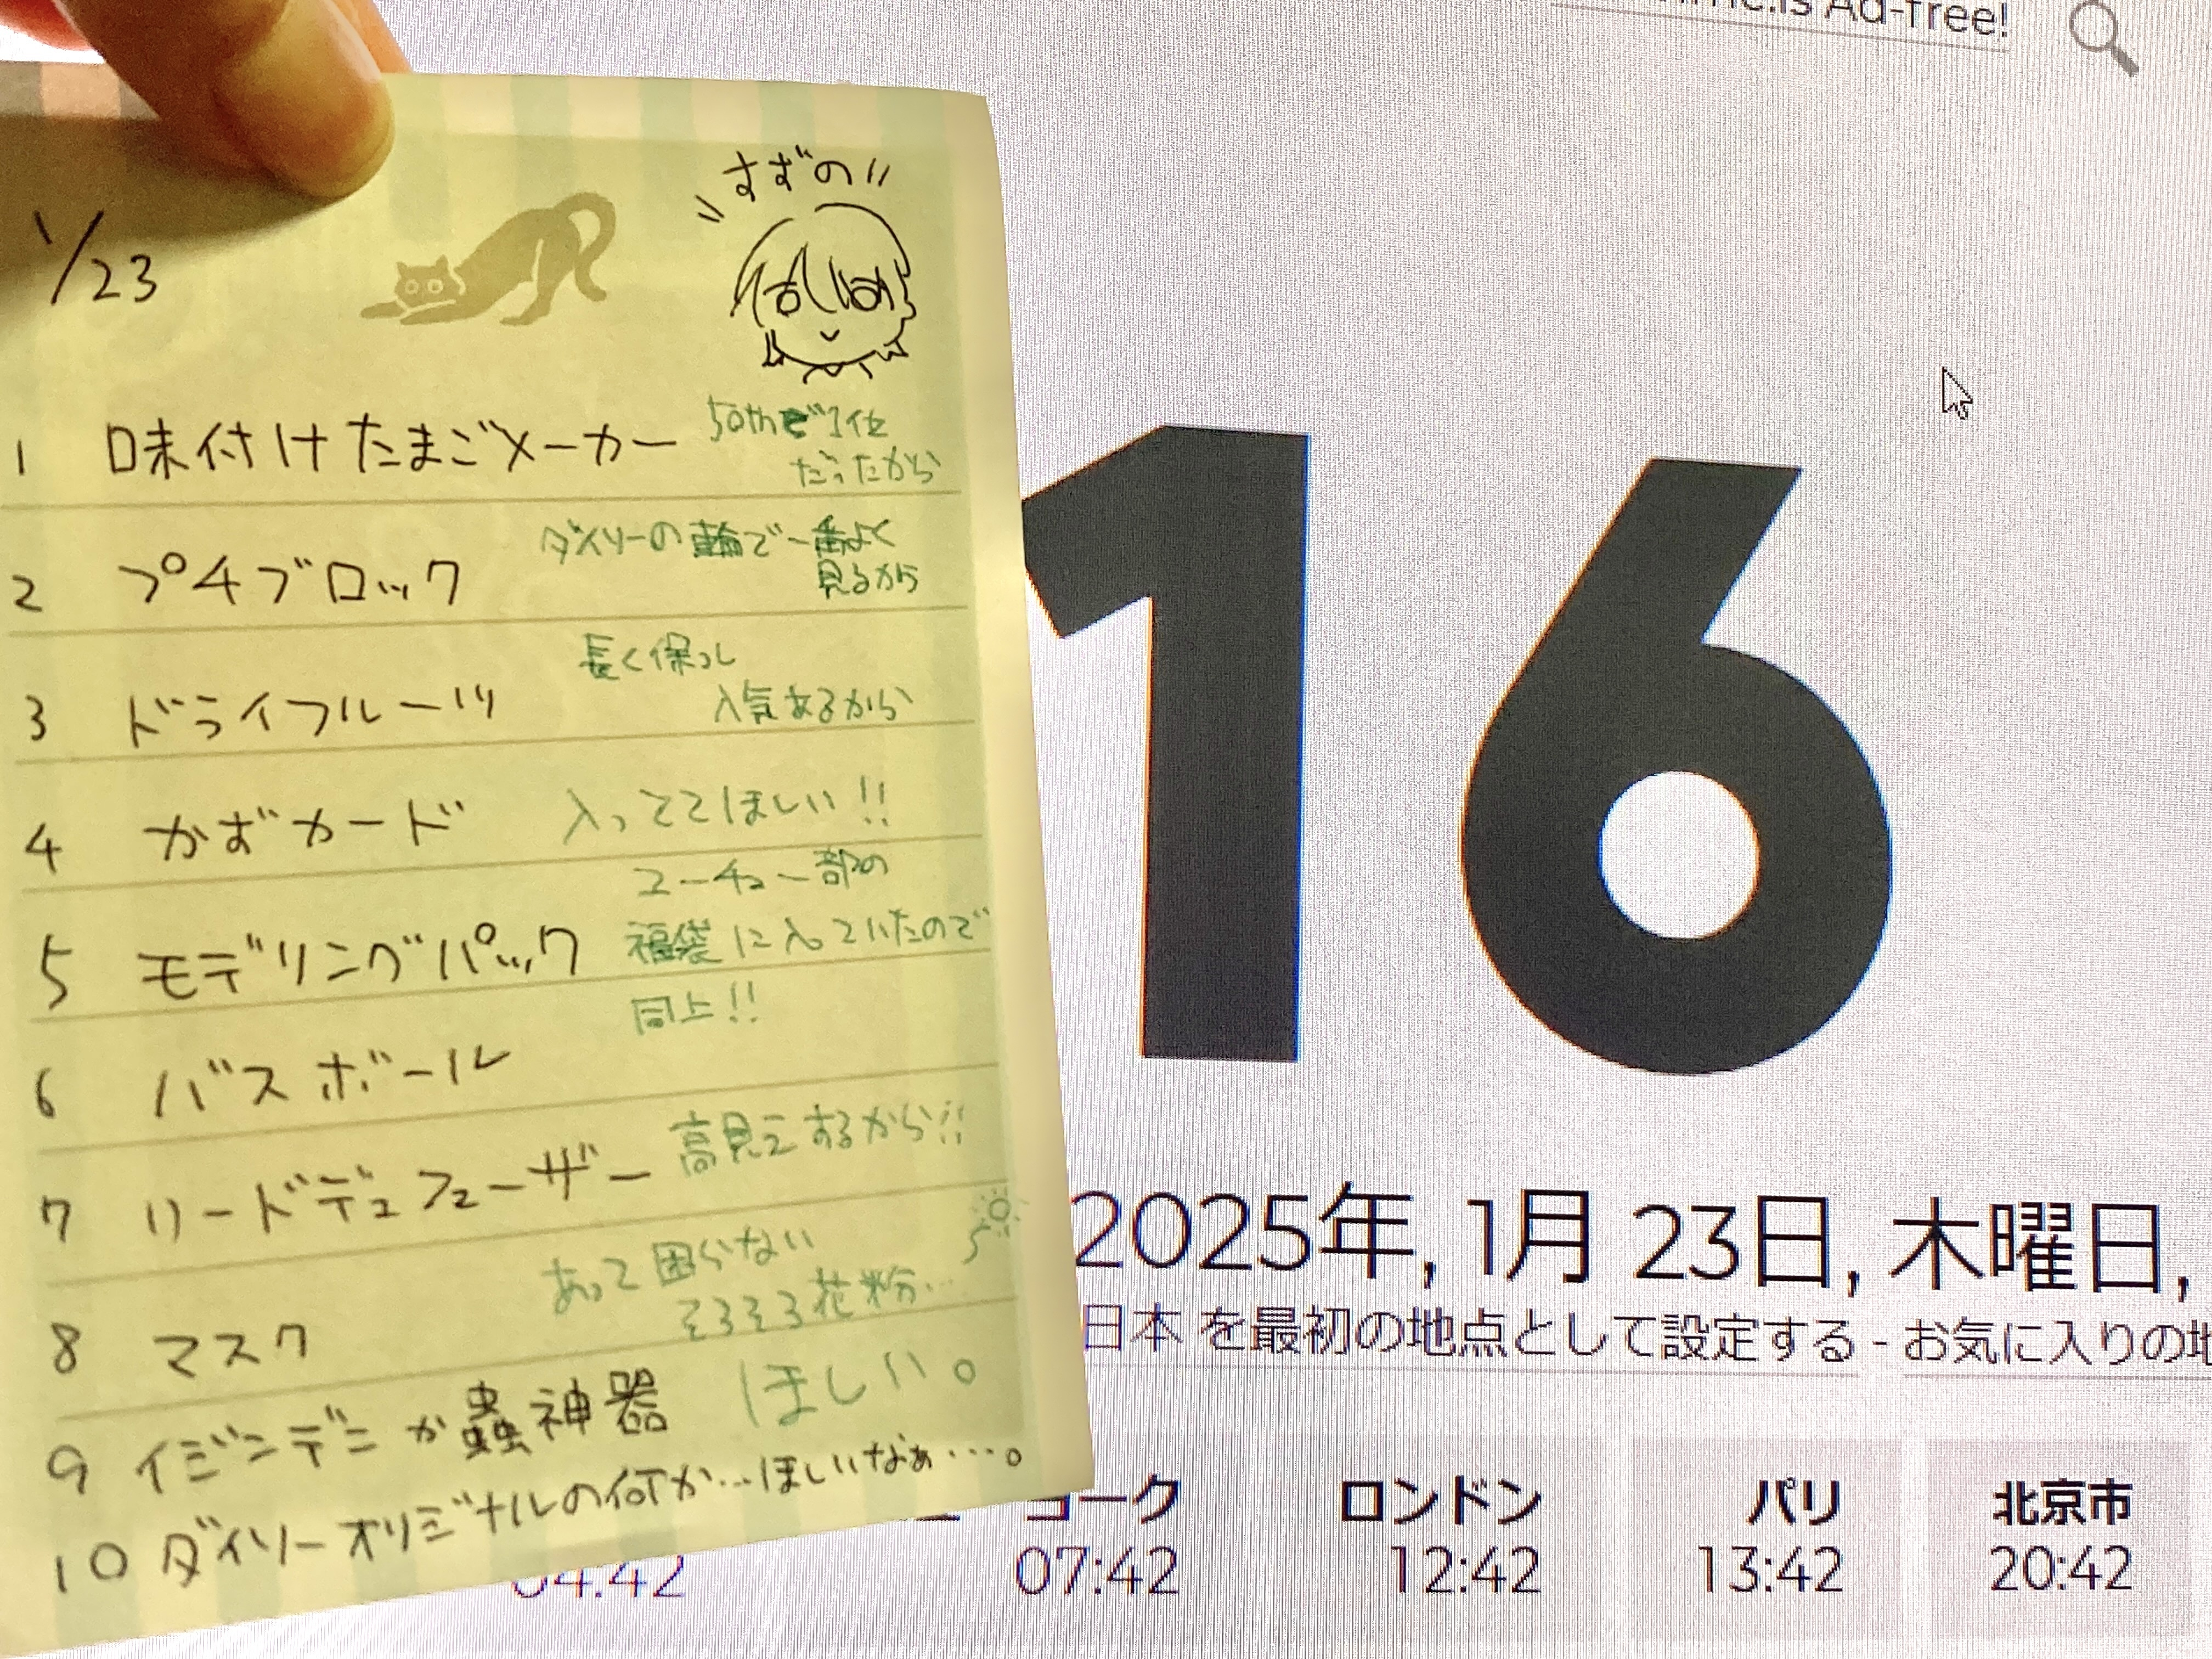 すずの
1/23
1 味付けたまごメーカー 50thで1位
だったから
2 プチブロック ダイソーの輪で一番よく
見るから
3 ドライフルーツ 長く保つし
人気あるから
4 かずカード 入っててほしい!!
5 モデリングパック ユーチュー部の
福袋に入っていたので
6 バスボール 同上!!
7 リードデュフューザー 高見えするから!!
8 マスク あって困らない
そろそろ花粉…
9 イミンデミか蟲神器 ほしい。
10 ダイソーオリジナルの何か…ほしいなぁ…。
Ad-free!
16
2025年, 1月 23日, 木曜日,
日本 を最初の地点として設定する - お気に入りの地
ヨーク ロンドン パリ 北京市
04:42 07:42 12:42 13:42 20:42